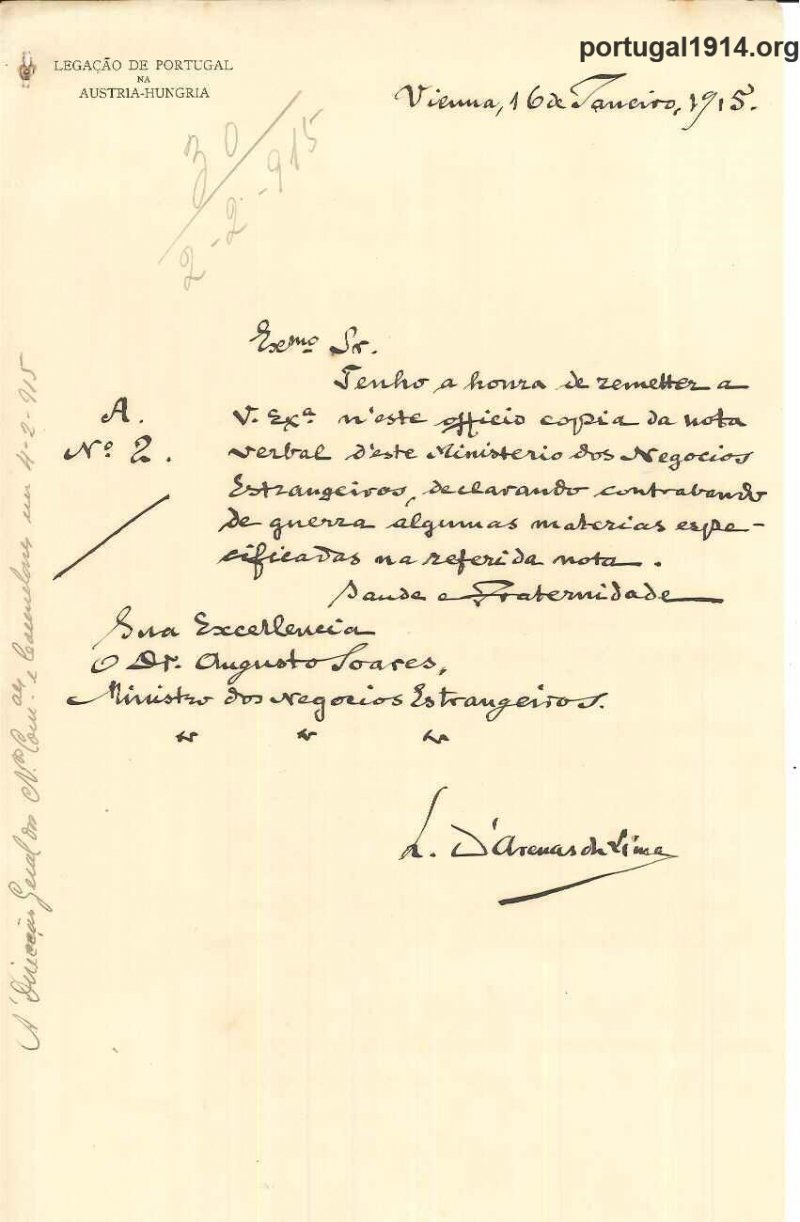 portugal1914.org
LEGAÇÃO DE PORTUGAL
NA
AUSTRIA-HUNGRIA
Vienna, 16 de Janeiro, 1915.
30
2-2-915
Exmo. Sr.
Tenho a honra de remetter a
A.
V. Exa n'este officio copia da nota
No. 2.
verbal d'este Ministerio dos Negocios
Estrangeiros, declarando contrabando
de guerra algumas materias espe-
cificadas na referida nota.
Saude e Fraternidade
Sua Excellencia
O Dr. Augusto Soares,
Ministro dos Negocios Estrangeiros.
" " "
L. D'Arenas de Lima
A' Direcção Geral dos N.os Com.aes e Consulares em 4-2-915